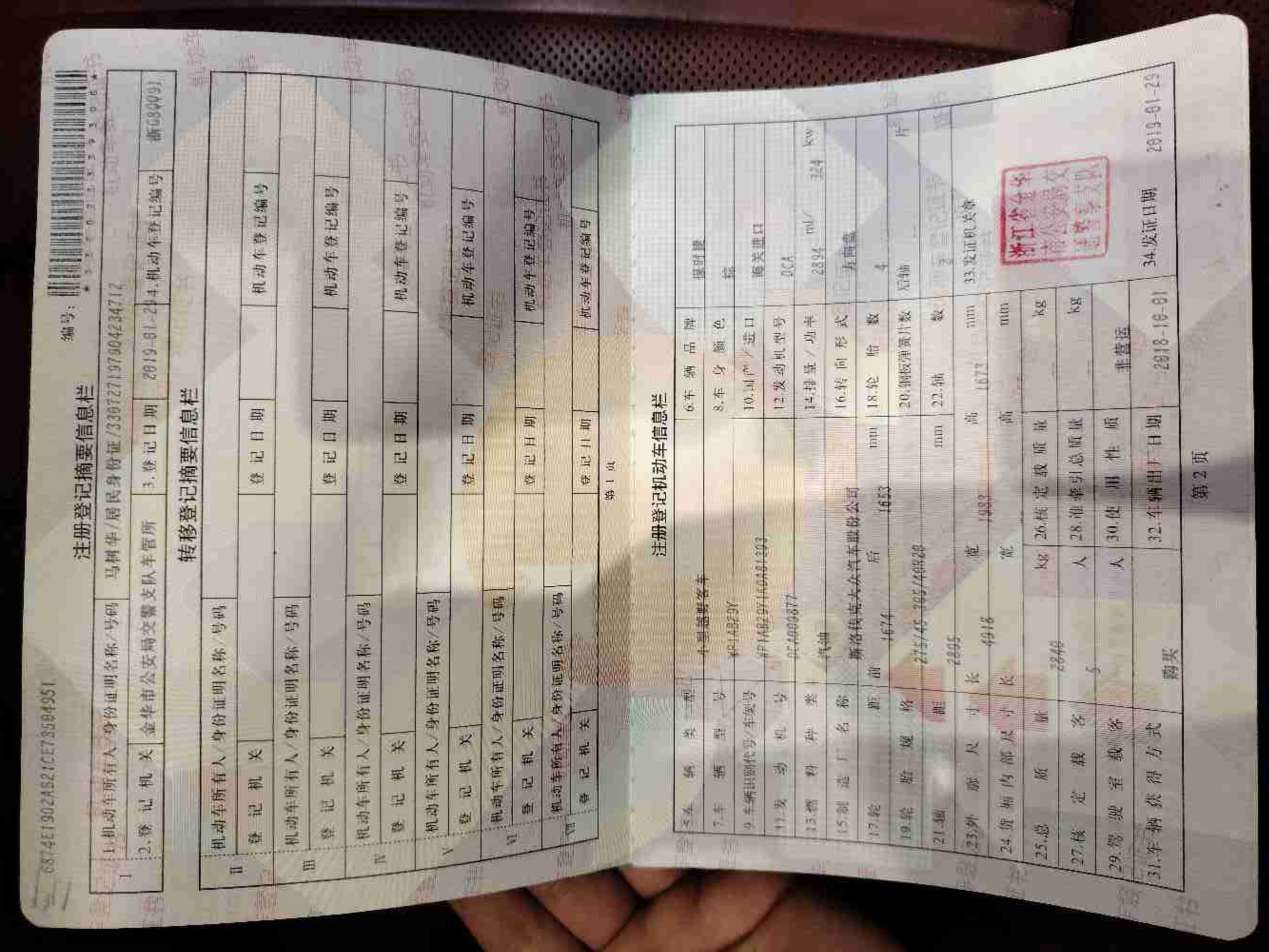 6874E1902AB21CE73584951
编号：
注册登记摘要信息栏
I
1.机动车所有人/身份证明名称/号码 马树华/居民身份证/330727197904234712
2.登记机关 金华市公安局交警支队车管所 3.登记日期 2019-01-29 4.机动车登记编号 浙G80Q91
转移登记摘要信息栏
II 机动车所有人/身份证明名称/号码
登记机关 登记日期 机动车登记编号
III 机动车所有人/身份证明名称/号码
登记机关 登记日期 机动车登记编号
IV 机动车所有人/身份证明名称/号码
登记机关 登记日期 机动车登记编号
V 机动车所有人/身份证明名称/号码
登记机关 登记日期 机动车登记编号
VI 机动车所有人/身份证明名称/号码
登记机关 登记日期 机动车登记编号
VII 机动车所有人/身份证明名称/号码
登记机关 登记日期 机动车登记编号
第 1 页
注册登记机动车信息栏
5.车辆类型 小型越野客车 6.车辆品牌 保时捷
7.车辆型号 WP1AB29Y 8.车身颜色 棕
9.车辆识别代号/车架号 10.国产/进口 海关进口
11.发动机号 DCA009877 12.发动机型号 DCA
13.燃料种类 汽油 14.排量/功率 2894 ml/ 324 kw
15.制造厂名称 斯洛伐克大众汽车股份公司 16.转向形式 方向盘
17.轮距 前 1674 后 1653 mm 18.轮胎数 4
19.轮胎规格 20.钢板弹簧片数 后轴 -- 片
21.轴距 2895 mm 22.轴数 2
23.外廓尺寸 长 4918 宽 1983 高 1673 mm 33.发证机关章
24.货厢内部尺寸 长 宽 高 mm
浙江省金华
市公安局交
通警察支队
25.总质量 2840 kg 26.核定载质量 kg
27.核定载客 5 人 28.准牵引总质量 kg
29.驾驶室载客 人 30.使用性质 非营运
31.车辆获得方式 购买 32.车辆出厂日期 2018-10-01 34.发证日期 2019-01-29
第 2 页